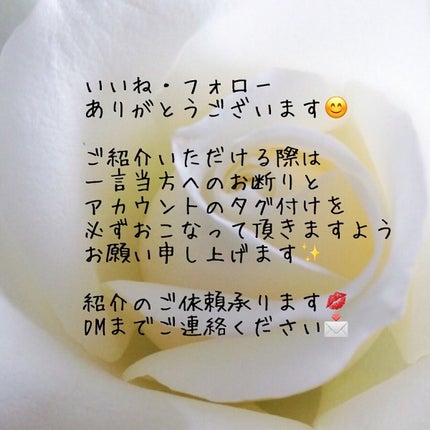 いいね・フォロー
ありがとうございます😊
ご紹介いただける際は
一言当方へのお断りと
アカウントのタグ付けを
必ずおこなって頂きますよう
お願い申し上げます✨
紹介のご依頼承ります💋
DMまでご連絡ください📩